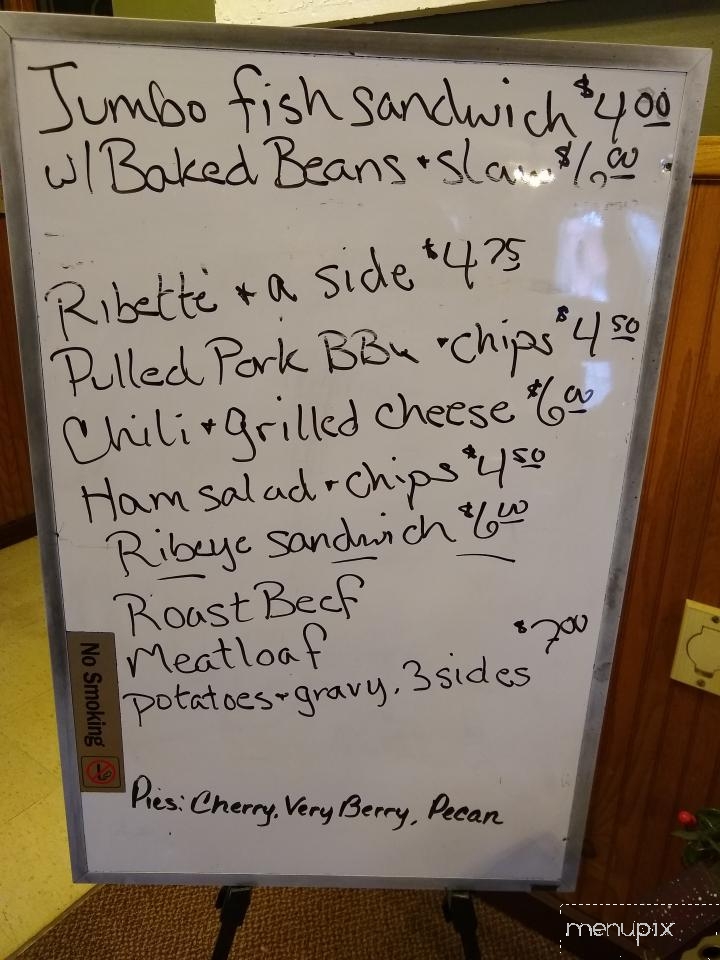 Jumbo fish sandwich $4.00
w/ Baked Beans + slaw $6.00
Ribette + a side $4.75
Pulled Pork BBQ + chips $4.50
Chili + grilled cheese $6.00
Ham salad + chips $4.50
Ribeye sandwich $6.00
Roast Beef
Meatloaf $7.00
potatoes + gravy, 3 sides
No Smoking
Pies: Cherry, Very Berry, Pecan
menupix